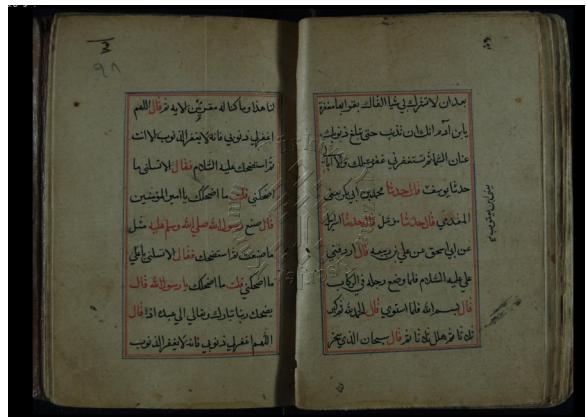 بعد ان لا تشرك بي شيا القاك بقرابها مغفرة
يابن آدم انك ان تذنب حتى تبلغ ذنوبك
عنان السماء ثم تستغفرني غفرت لك ولا ابالي
حدثنا يوسف قال حدثنا محمد بن ابي بكر
المقدمي قال حدثنا قال حدثنا
عن ابي اسحق عن علي بن ربيعه قال اردفني
علي عليه السلام فلما وضع رجله في الركاب
قال بسم الله فلما استوي قال الحمد لله ثم كبر
ثلاثا ثم هلل ثلاثا ثم قال سبحان الذي سخر
لنا هذا وما كنا له مقرنين لايه ثم قال اللهم
اغفر لي ذنوبي فانه لا يغفر الذنوب الا انت
ثم استضحك عليه السلام فقال لا تسلني ما
اضحكني قلت ما اضحكك يا امير المؤمنين
قال صنع رسول الله صلي الله وسلم عليه مثل
ما صنعت ثم استضحك فقال لا تسلني يا علي
ما اضحكني قلت ما اضحكك يا رسول الله قال
يضحك ربنا تبارك وتعالي الي عبده اذا قال
اللهم اغفر لي ذنوبي فانه لا يغفر الذنوب